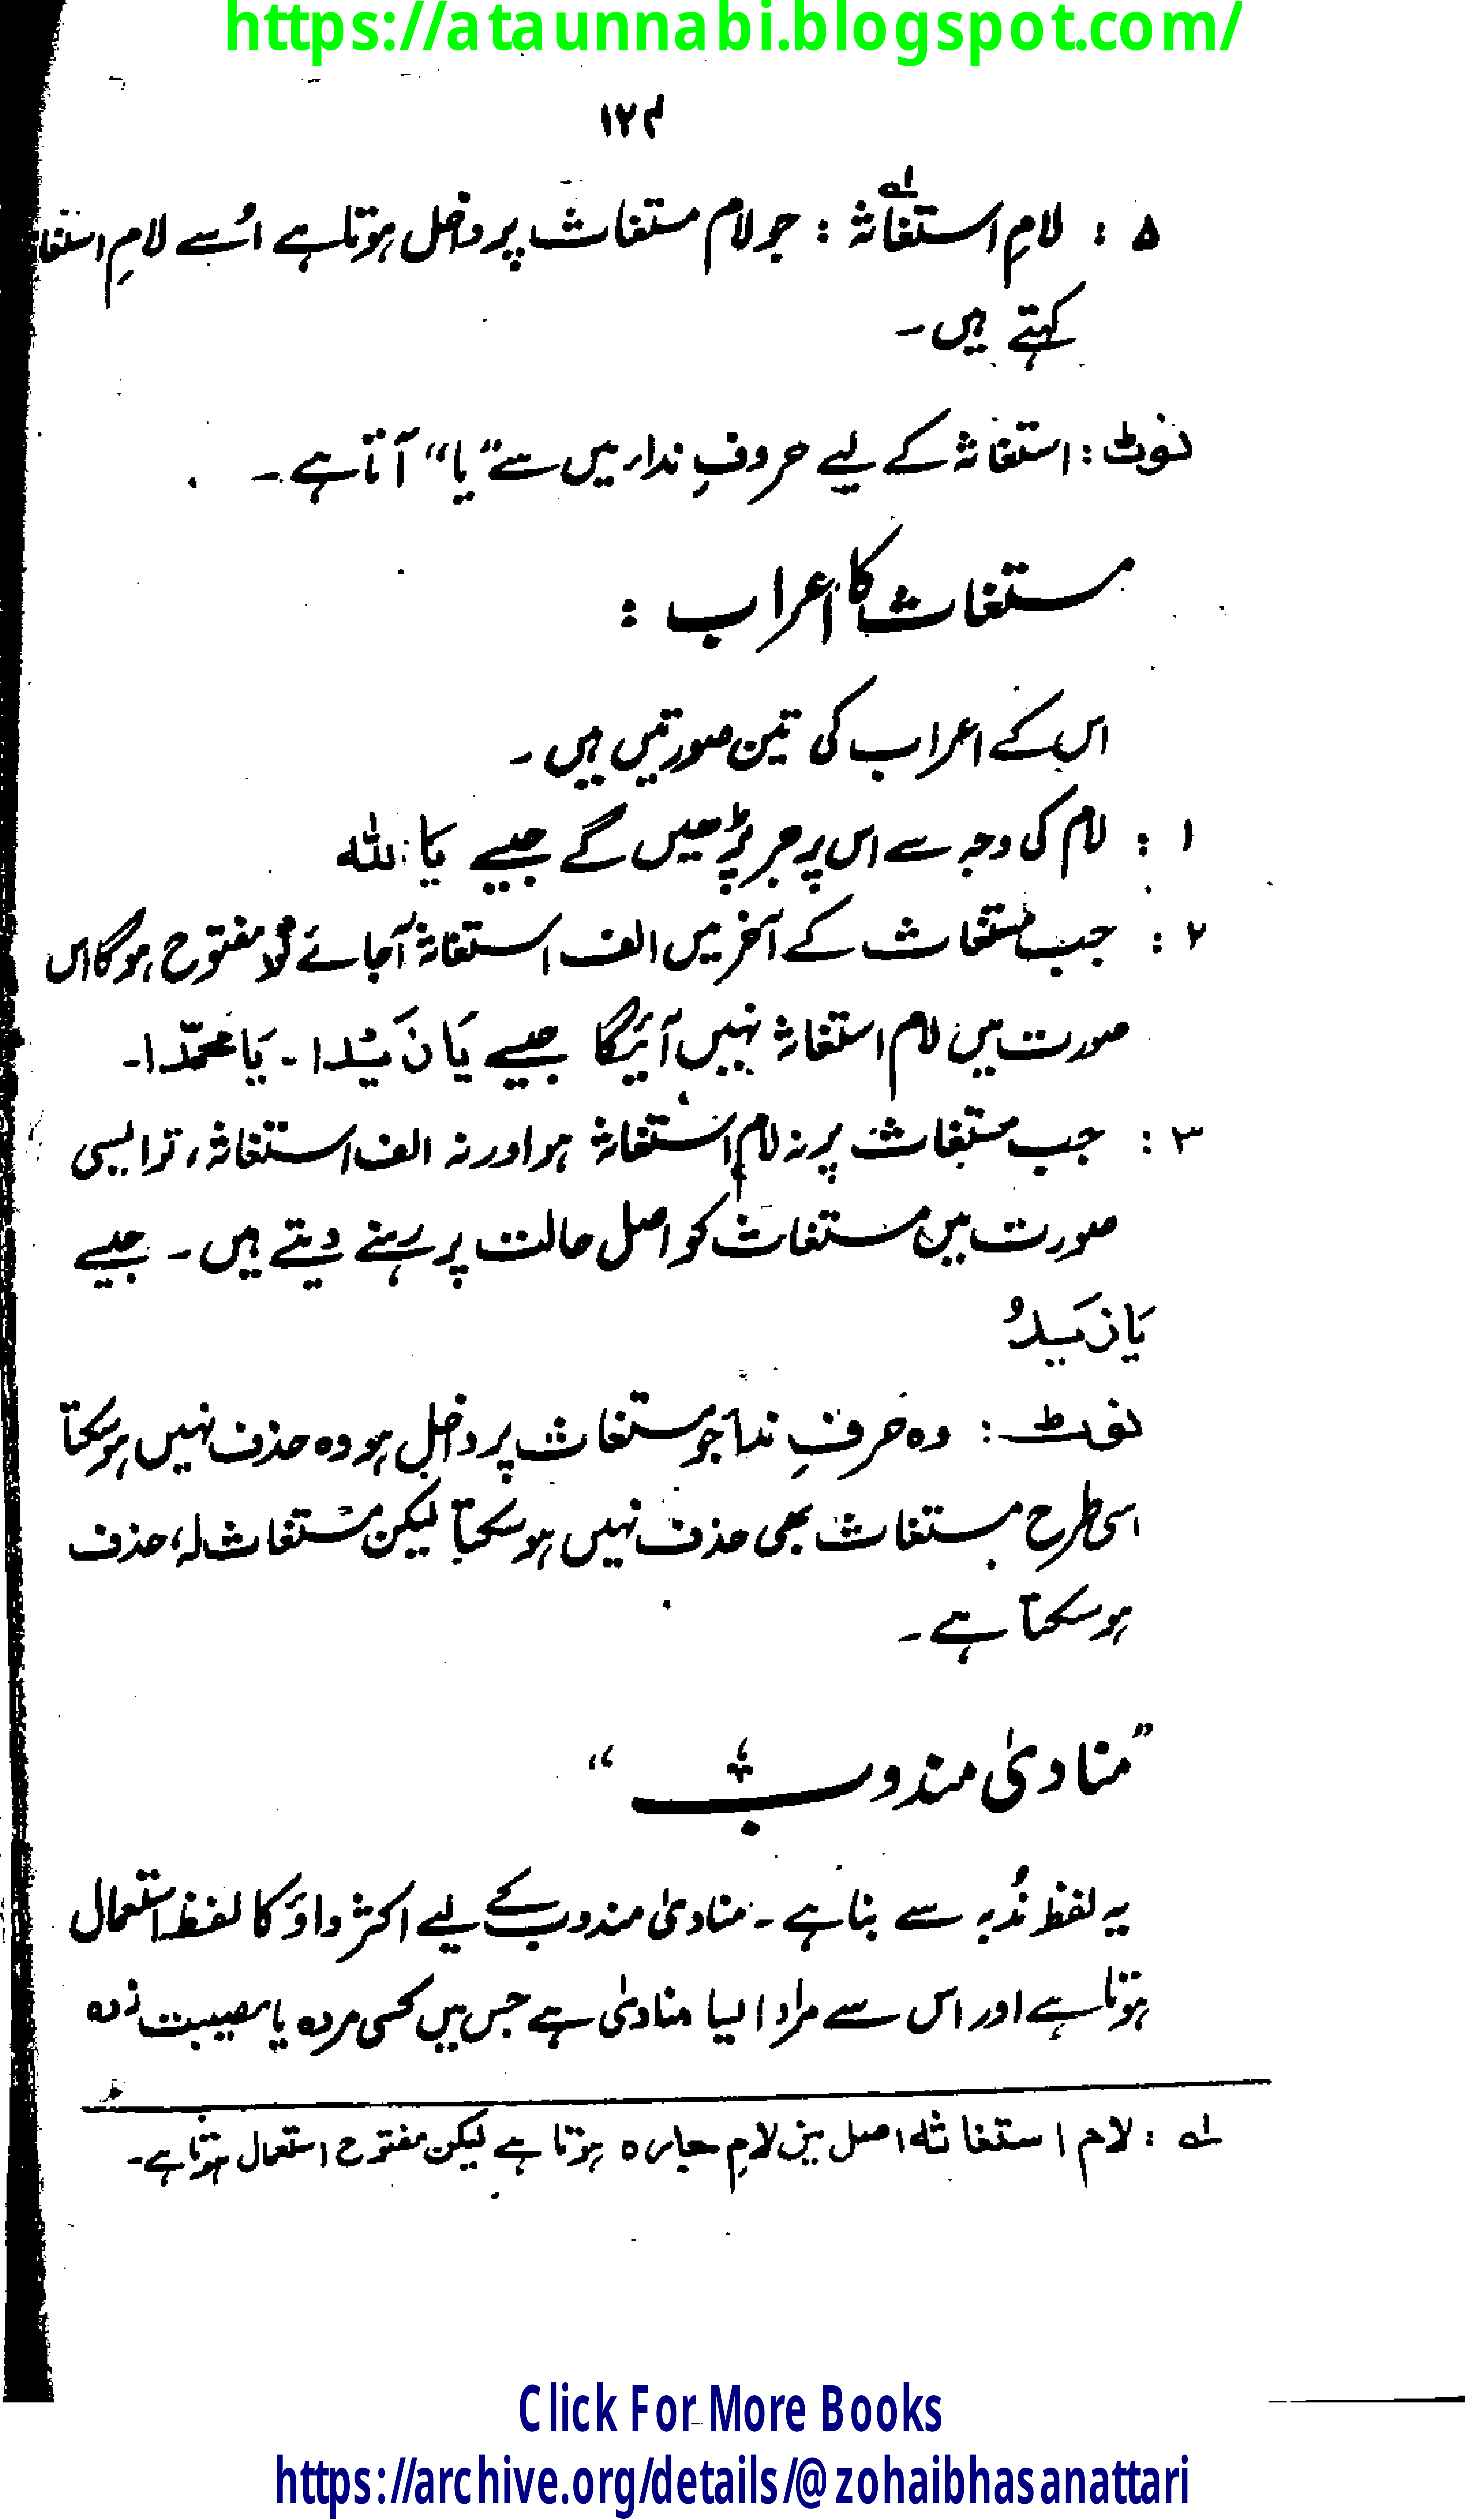 https://ataunnabi.blogspot.com/
۱۲۴
۵ : لامِ استغاثہ ؂۱ : جو لام مستغاث پر داخل ہوتا ہے اُسے لامِ استغا
کہتے ہیں۔
نوٹ : استغاثہ کے لیے حروفِ ندا میں سے "یا" آتا ہے۔
مستغاث کا اعراب :
اس کے اعراب کی تین صورتیں ہیں۔
۱ : لام کی وجہ سے اس پر جر پڑھیں گے جیسے یَا للہ
۲ : جب مستغاث کے آخر میں الف استغاثہ آجائے مفتوح ہوگا اس
صورت میں لام استغاثہ نہیں آئیگا جیسے یَا زَیْدا۔ یَا محمّدا۔
۳ : جب مستغاث پر نہ لام استغاثہ ہو اور نہ الف استغاثہ، تو ایسی
صورت میں مستغاث کو اصل حالت پر رہنے دیتے ہیں۔ جیسے
یَا زَیدُ
نوٹ : وہ حرفِ ندا جو مستغاث پر داخل ہو وہ حذف نہیں ہوسکتا
اسی طرح مستغاث بھی حذف نہیں ہوسکتا لیکن مستغاث لہ، حذف
ہوسکتا ہے۔
"منادیٰ مندوب"
یہ لفظ نُدبہ سے بنا ہے۔ منادیٰ مندوب کے لیے اکثر واؤ کا لفظ استعمال
ہوتا ہے اور اس سے مراد ایسا منادیٰ ہے جس میں کسی مردہ یا مصیبت زدہ
؂۱ : لام استغاثہ اصل میں لامِ جارہ ہوتا ہے لیکن مفتوح استعمال ہوتا ہے۔
Click For More Books
https://archive.org/details/@zohaibhasanattari